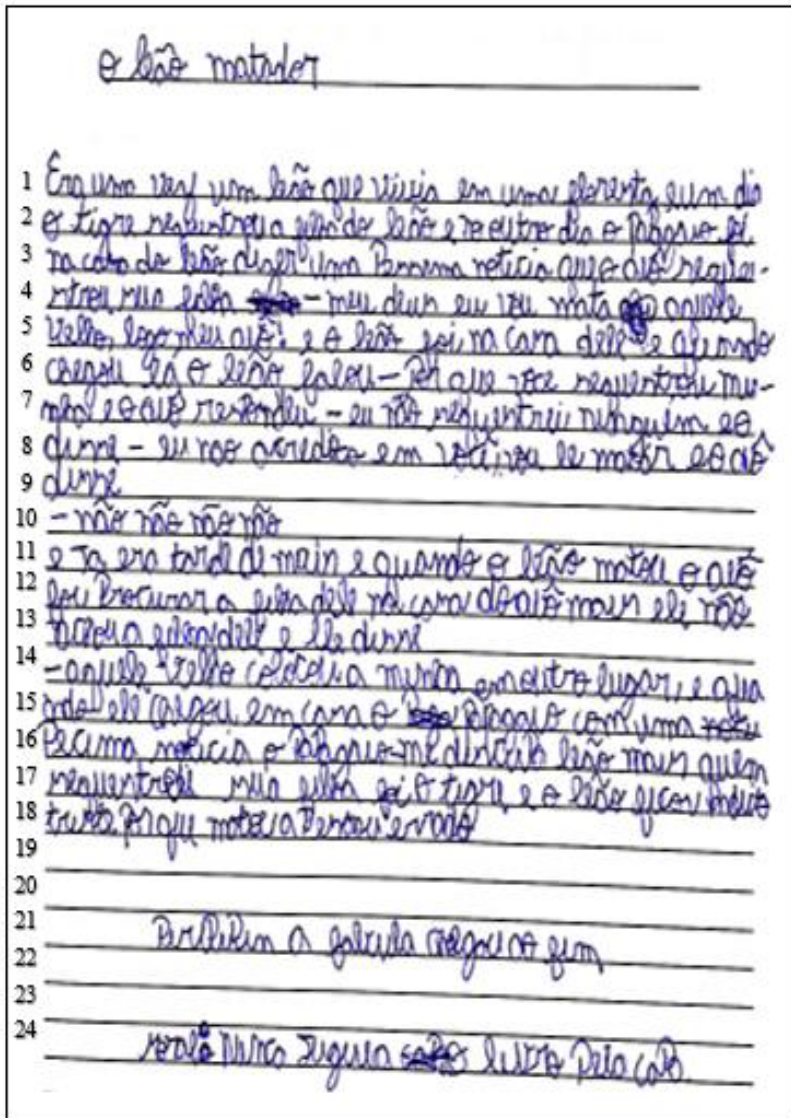 o leão matador
1 Era uma vez um leão que vivia em uma floresta, e um dia
2 o tigre sequentrou a filha do leão e no outro dia o papagaio foi
3 na casa do leão dizer uma pessema noticia que o avô seques-
4 trou sua filha - meu deus eu vou mata aquele
5 velho, logo meu avô! e o leão foi na casa dele e quando
6 chegou lá o leão falou - Por que voce sequentrou mi-
7 nha e o avô respondeu - eu não sequentrei ninguém e o
8 disse - eu nao acredito em você, vou le matar e o avô
9 disse
10 - não não não não
11 e ja era tarde de mais e quando o leão matou o avô
12 fou procurar a filha dele na casa do avô mais ele não
13 achou a filha dele e ele disse
14 - aquele velho colocou a minha em outro lugar, e qua
15 ndo ele chegou em casa o papagaio com uma
16 pecima noticia o papagaio - me disculpa leão mais quem
17 sequentrou sua filha foi o tigre e o leão ficou muito
18 triste porque matou a pessou errado
19
20
21 Perlipin a fabula chegou ao fim
22
23
24 moral: Nunca julgue o livro pela capa.